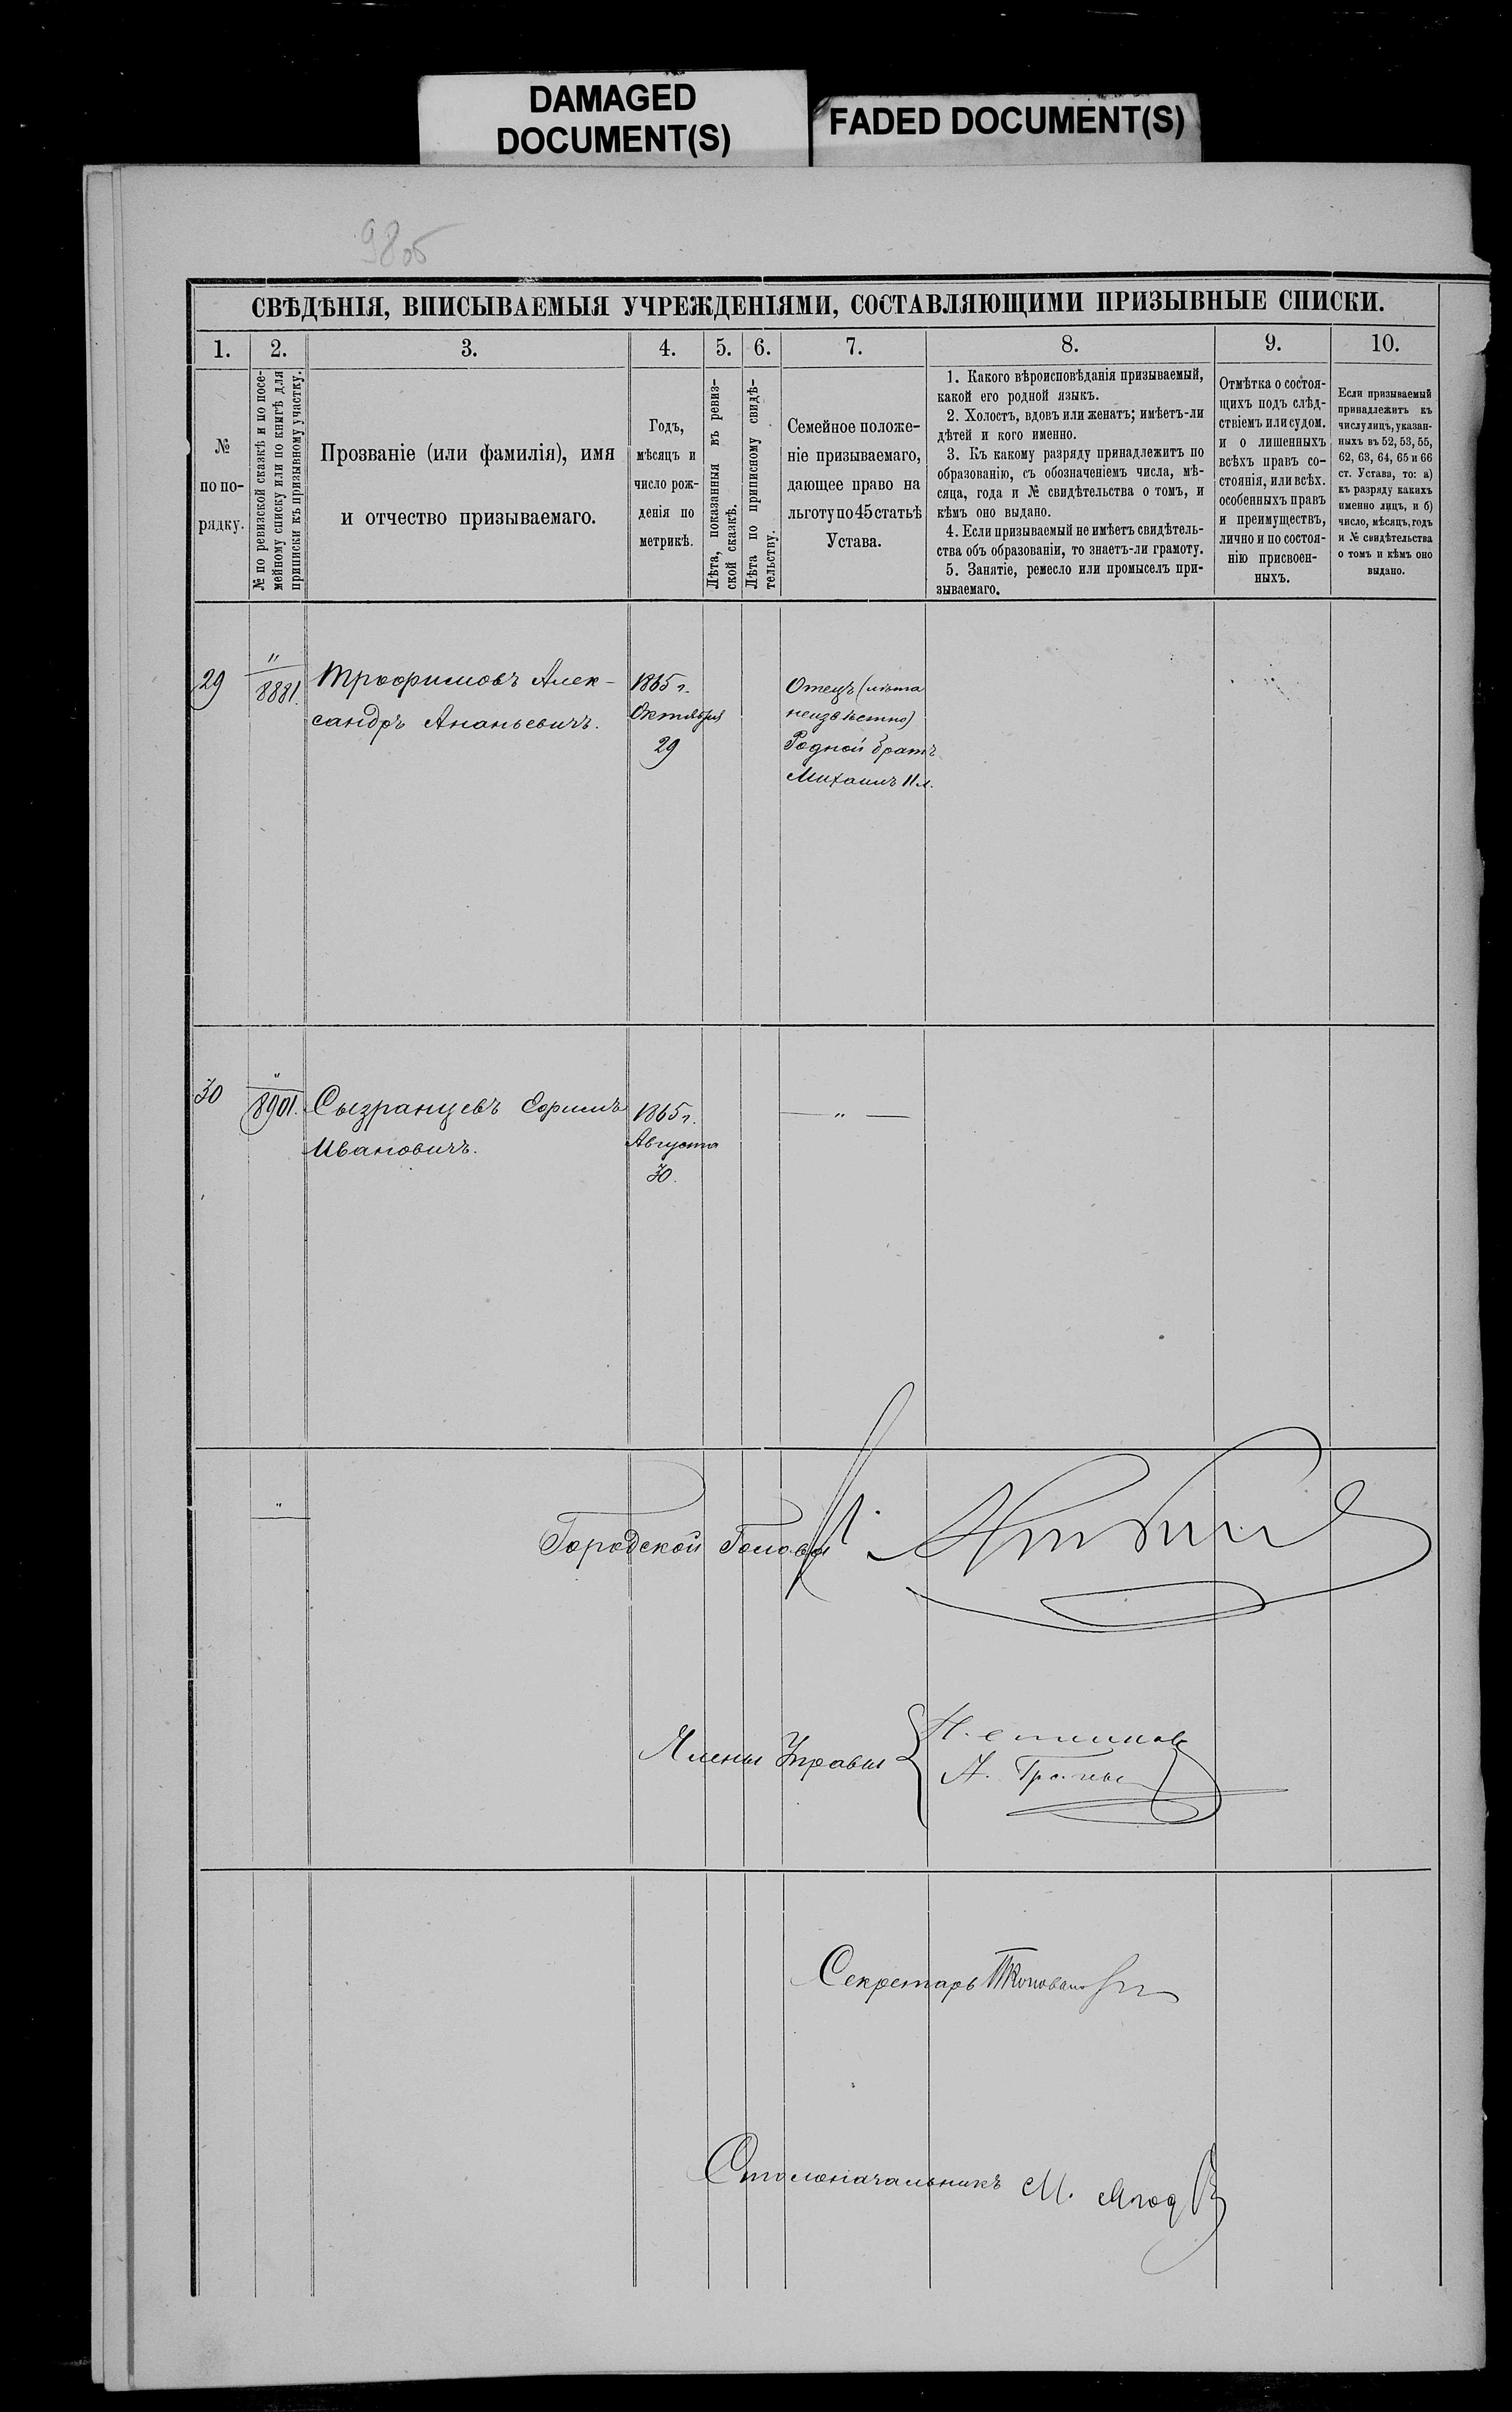 DAMAGED
DOCUMENT(S)
FADED DOCUMENT(S)
98об
СВѢДѢНІЯ, ВПИСЫВАЕМЫЯ УЧРЕЖДЕНІЯМИ, СОСТАВЛЯЮЩИМИ ПРИЗЫВНЫЕ СПИСКИ.
1.
2.
3.
4.
5.
6.
7.
8.
9.
10.
№
по по-
рядку.
№ по ревизской сказкѣ и по посе-
мейному списку или по книгѣ для
приписки къ призывному участку.
Прозваніе (или фамилія), имя
и отчество призываемаго.
Годъ,
мѣсяцъ и
число рож-
денія по
метрикѣ.
Лѣта, показанныя въ ревиз-
ской сказкѣ.
Лѣта по приписному свидѣ-
тельству.
Семейное положе-
ніе призываемаго,
дающее право на
льготу по 45 статьѣ
Устава.
1. Какого вѣроисповѣданія призываемый,
какой его родной языкъ.
2. Холостъ, вдовъ или женатъ; имѣетъ-ли
дѣтей и кого именно.
3. Къ какому разряду принадлежитъ по
образованію, съ обозначеніемъ числа, мѣ-
сяца, года и № свидѣтельства о томъ, и
кѣмъ оно выдано.
4. Если призываемый не имѣетъ свидѣтель-
ства объ образованіи, то знаетъ-ли грамоту.
5. Занятіе, ремесло или промыселъ при-
зываемаго.
Отмѣтка о состоя-
щихъ подъ слѣд-
ствіемъ или судом.
и о лишенныхъ
всѣхъ правъ со-
стоянія, или всѣх.
особенныхъ правъ
и преимуществъ,
лично и по состоя-
нію присвоен-
ныхъ.
Если призываемый
принадлежитъ къ
числу лицъ, указан-
ныхъ въ 52, 53, 55,
62, 63, 64, 65 и 66
ст. Устава, то: а)
къ разряду какихъ
именно лицъ, и б)
число, мѣсяцъ, годъ
и № свидѣтельства
о томъ и кѣмъ оно
выдано.
29
"
8881.
Трофимовъ Алек-
сандръ Ананьевичъ.
1865 г.
Октября
29
Отецъ (лѣта
неизвѣстно)
Родной братъ
Михаилъ 11 л.
30
"
8901.
Сызранцевъ Ефимъ
Ивановичъ.
1865 г.
Августа
30.
— " —
"
Городской Голова
Члены Управы
Н.
А. Грачевъ
Секретарь
Столоначальникъ М.